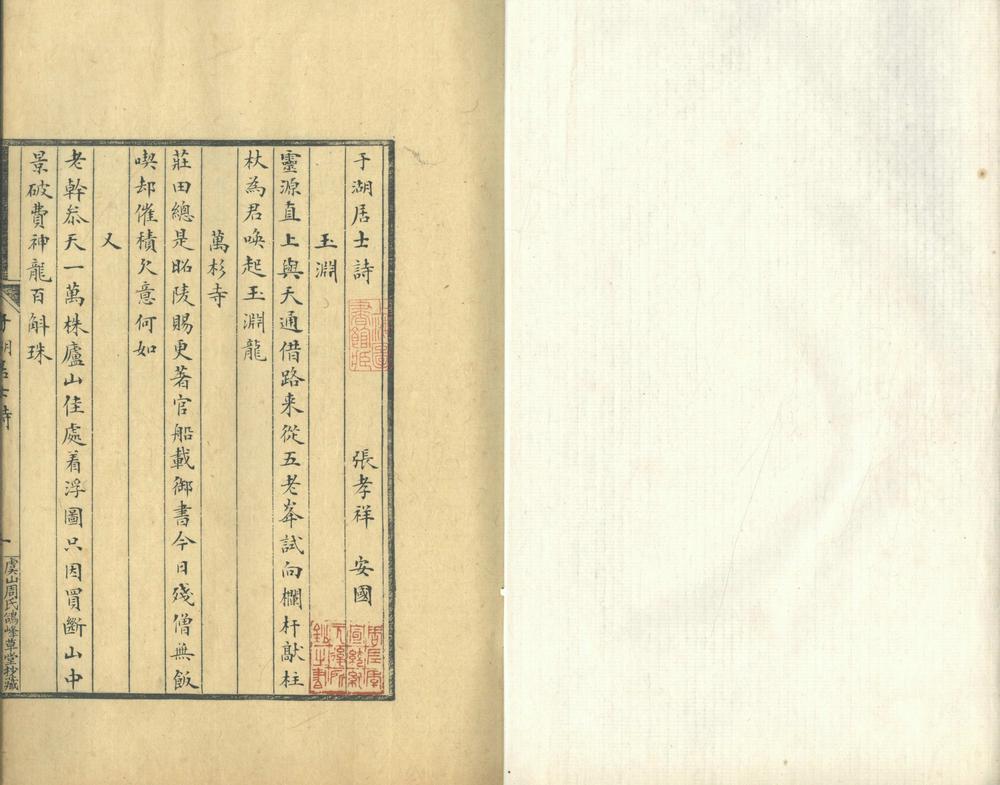 于湖居士詩 張孝祥 安國
玉淵
靈源直上與天通借路来從五老峯試向欄杆敲柱
杖為君喚起玉淵龍
萬杉寺
莊田總是昭陵賜更著官船載御書今日殘僧無飯
喫却催積欠意何如
又
老幹叅天一萬株廬山佳處着浮圖只因買斷山中
景破費神龍百斛珠
于湖居士詩
一
虞山周氏鴿峰草堂抄藏